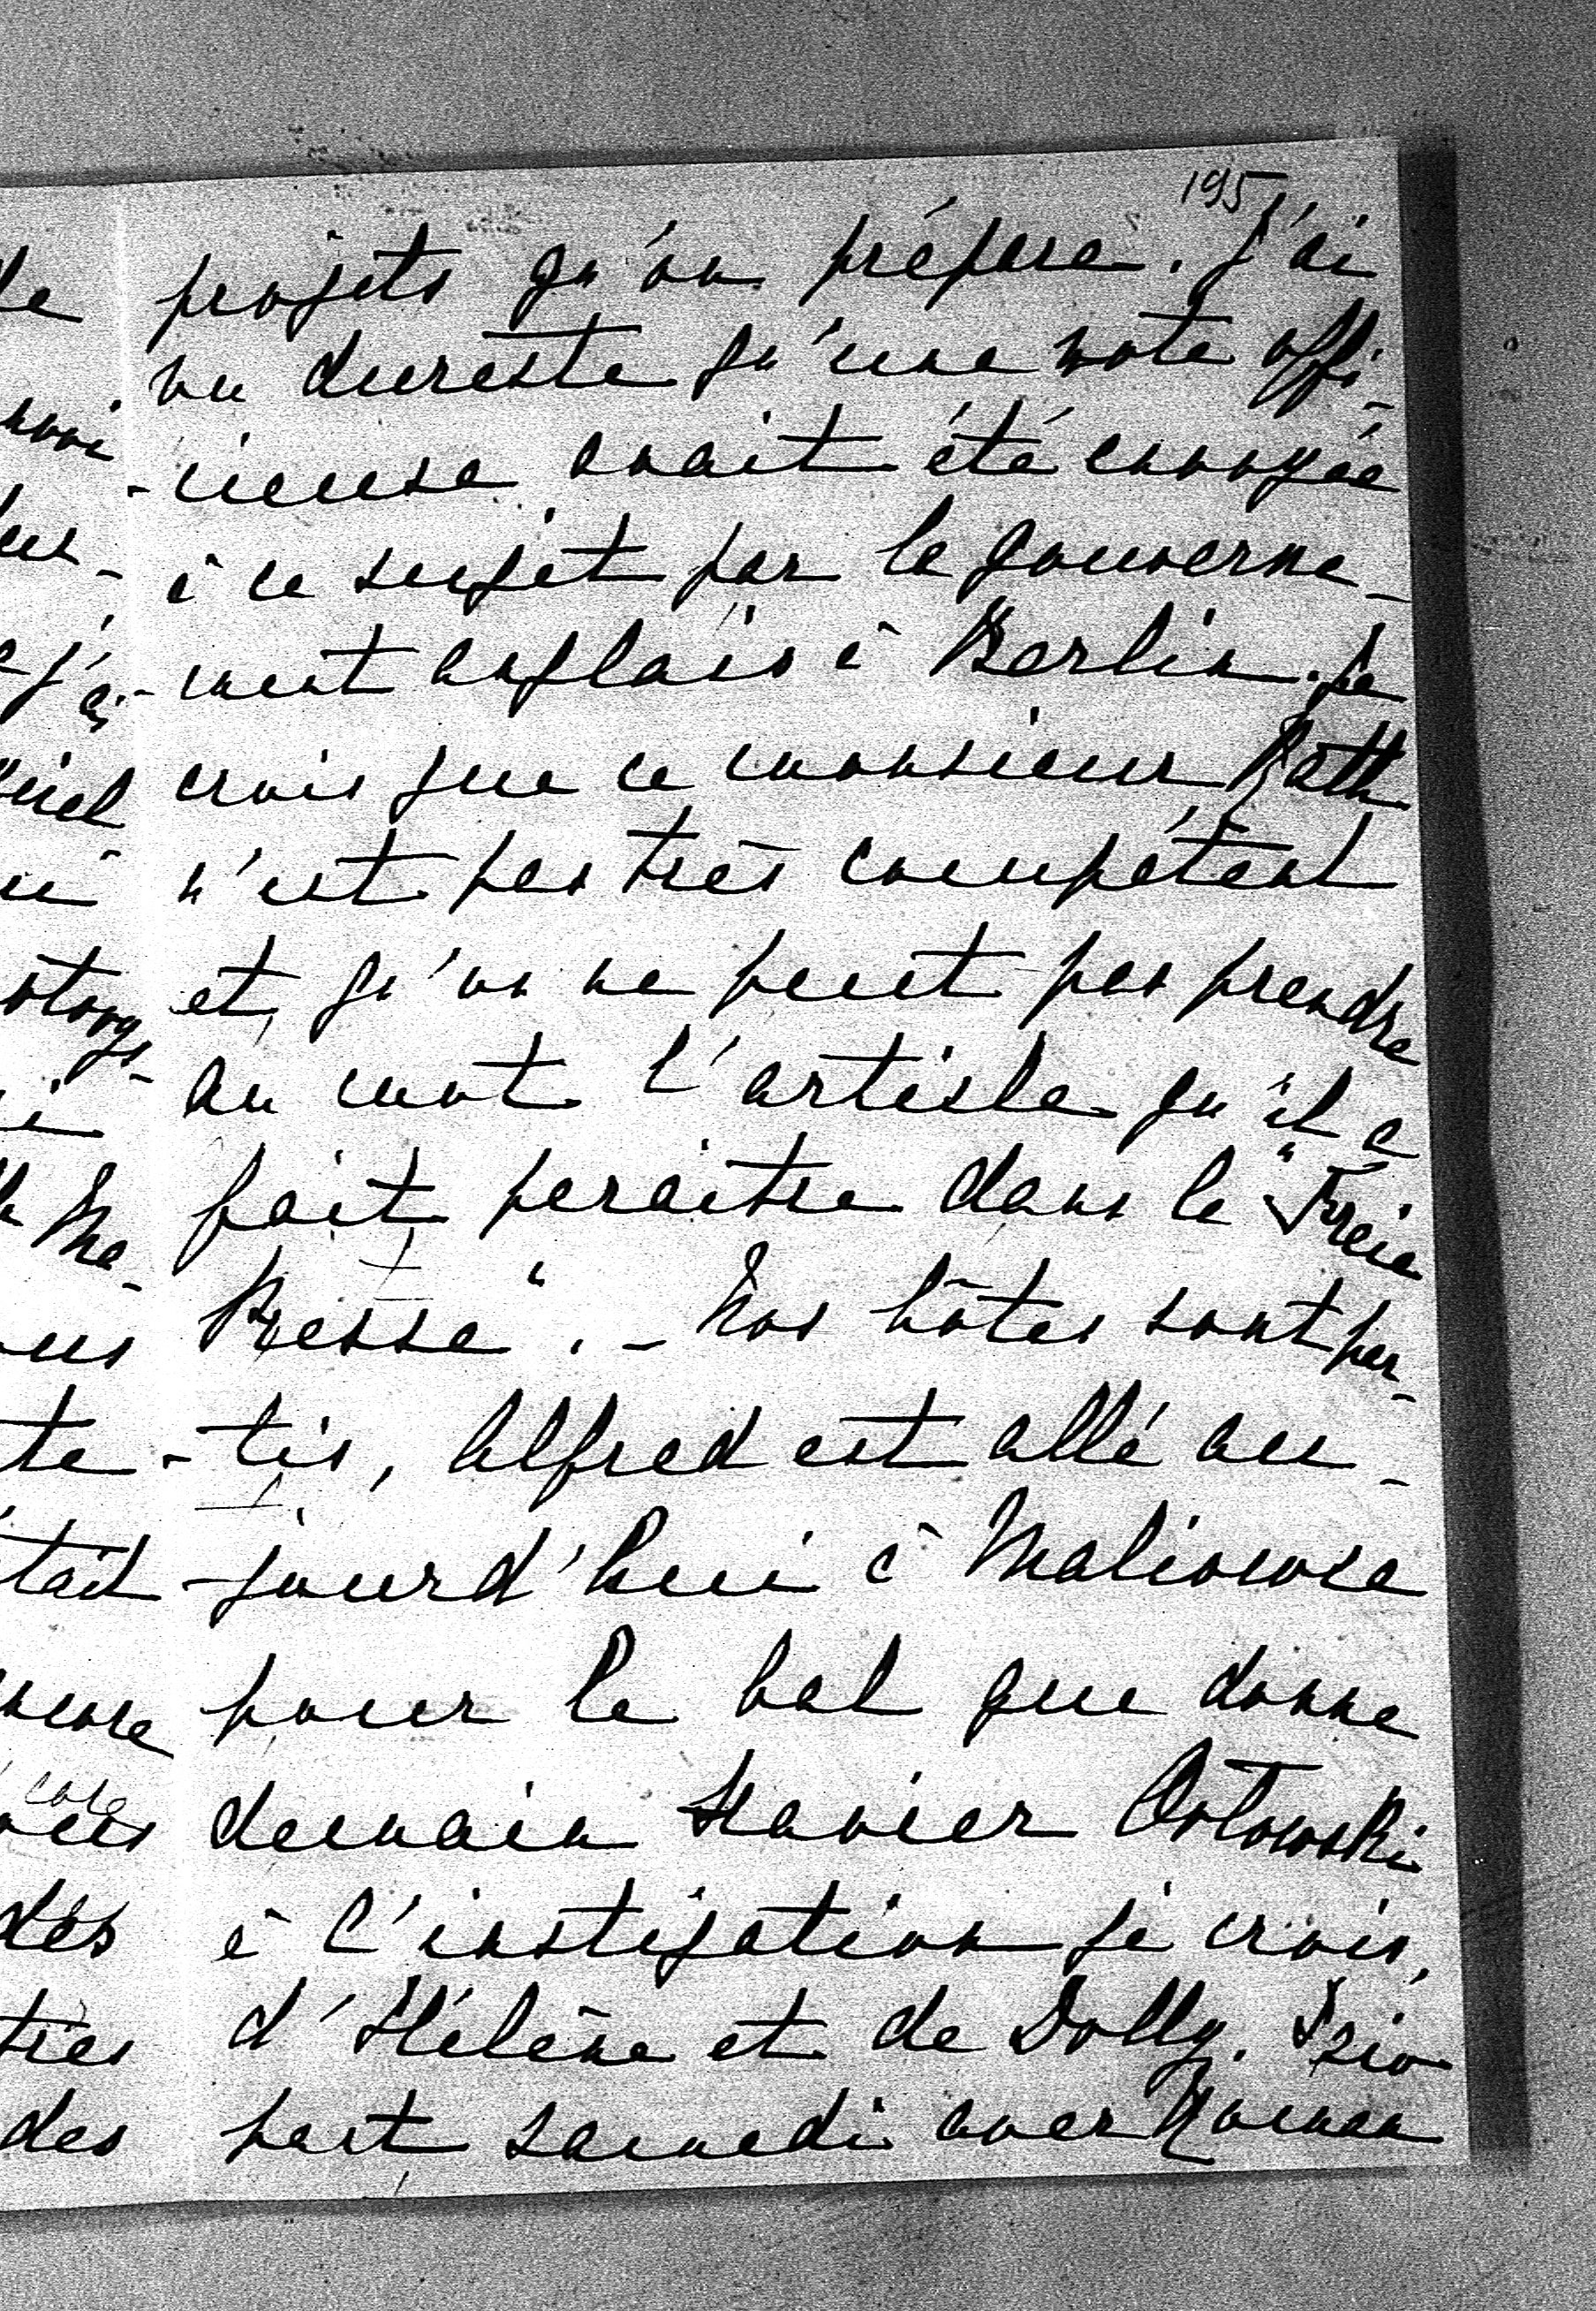 195
projets qu'on prépare. J'ai
vu dureste qu'une note offi-
-cieuse avait été envoyée
à ce sujet par le gouverne-
-ment anglais à Berlin. Je
crois que ce monsieur Rath
n'est pas très compétent
et qu'on ne peut pas prendre
au mot l'article qu'il a
fait paraitre dans le "Freie
Presse". - Nos hôtes sont par-
-tis, Alfred est allé au-
-jourd'hui à Malinowce
pour le bal que donne
demain Xavier Orłowski
à l'instigation je crois,
d'Hélène et de Dolly. Izio
part samedi avec Roman
de
j'ai-
ni
te
tait
encore
vous
dés
tres
des